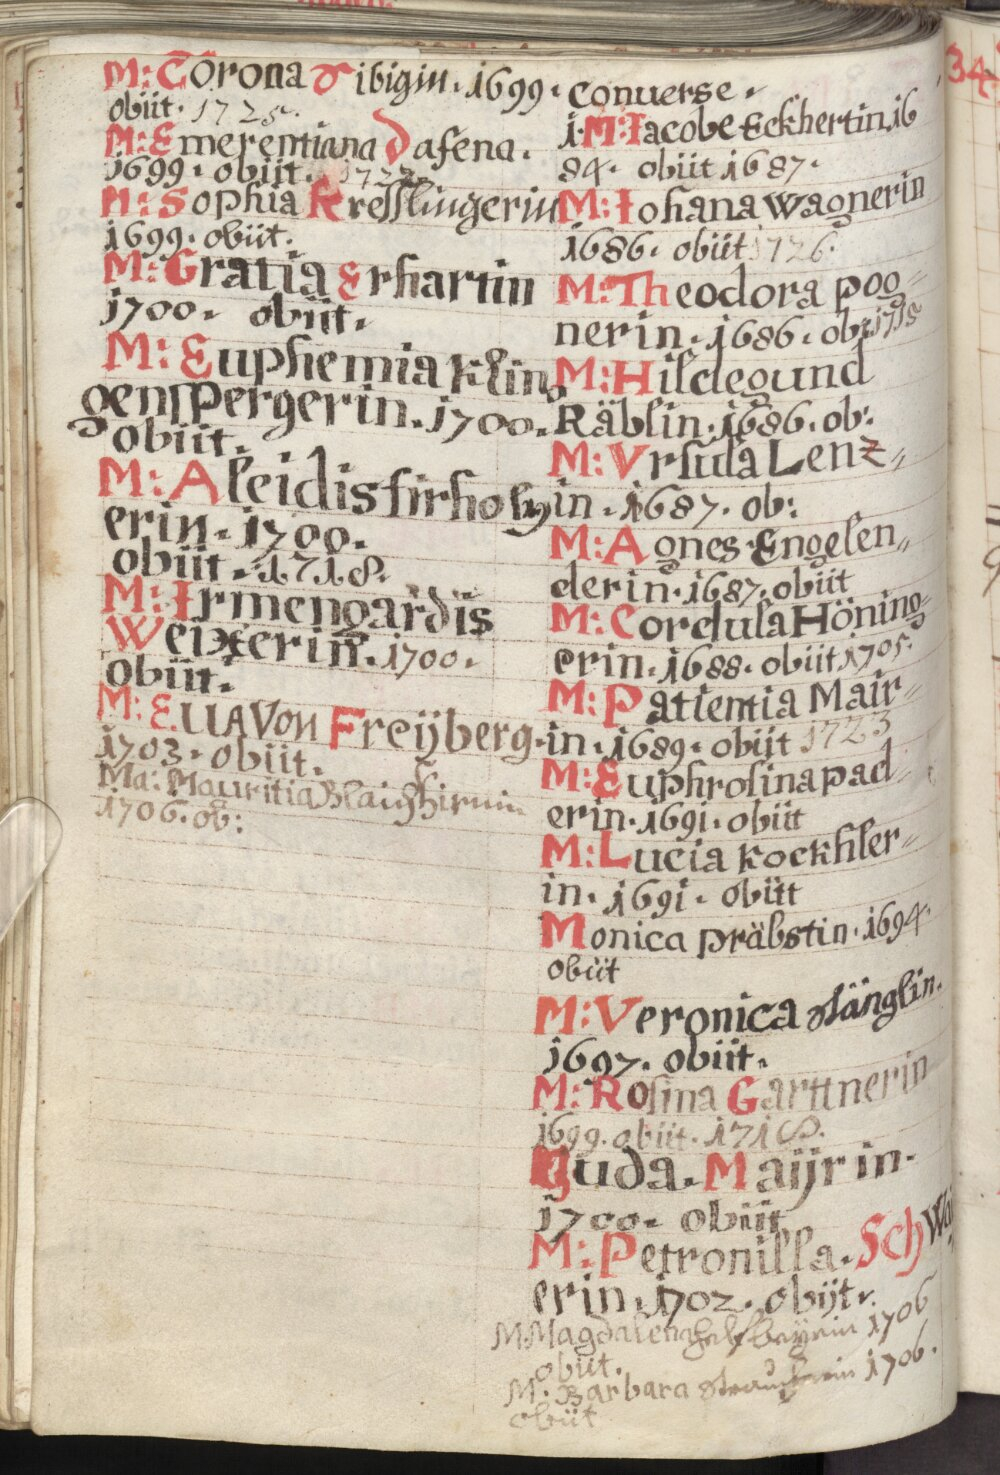 M: Corona Tibigin. 1699.
obiit. 1725.
M: Emerentiana Dafena.
1699. obiit. 1722.
M: Sophia Kresslingerin
1699. obiit.
M: Gratia Erhartin
1700. obiit.
M: Euphemia Kling
gensPergerin. 1700.
obiit.
M: Aleidis firholz
erin. 1700.
obiit. 1718.
M: Irmengardis
Weixerin. 1700.
obiit.
M: Eua Von Freÿberg.
1703. obiit.
Ma: Mauritia
1706. ob:
Conuerse.
1. M: Iacobe Eckhertin. 16
84. obiit 1687.
M: Iohana Wagnerin
1686. obiit 1726.
M: Theodora pog=
nerin. 1686. ob: 1718
M: Hildegund
Räblin. 1686. ob:
M: Vrsula Lenz=
in. 1687. ob:
M: Agnes Engelen=
derin. 1687. obiit
M: Cordula Höning=
erin. 1688. obiit 1705.
M: Patientia Mair=
in. 1689. obiit 1723
M: Euphrosina pad=
erin. 1691. obiit
M: Lucia Kockhler=
in. 1691. obiit
Monica präbstin. 1694.
obiit
M: Veronica Stänglin.
1697. obiit.
M: Rosina Garttnerin
1699. obiit. 1718.
Guda. Maÿrin.
1700. obiit
M: Petronilla. Schwai
erin. 1702. obijt.
M: Magdalena 1706
obiit.
M: Barbara 1706.
obiit
34